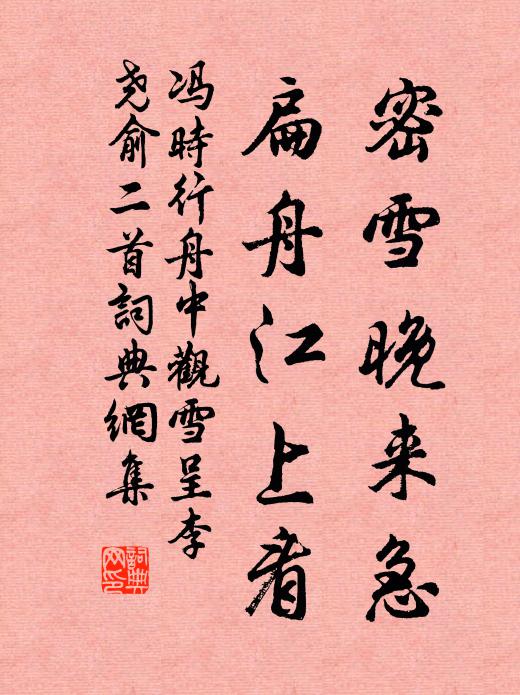 密雪晚来急
扁舟江上看
冯時行舟中觀雪呈李
尧俞二首詞典網集
詞典
网印